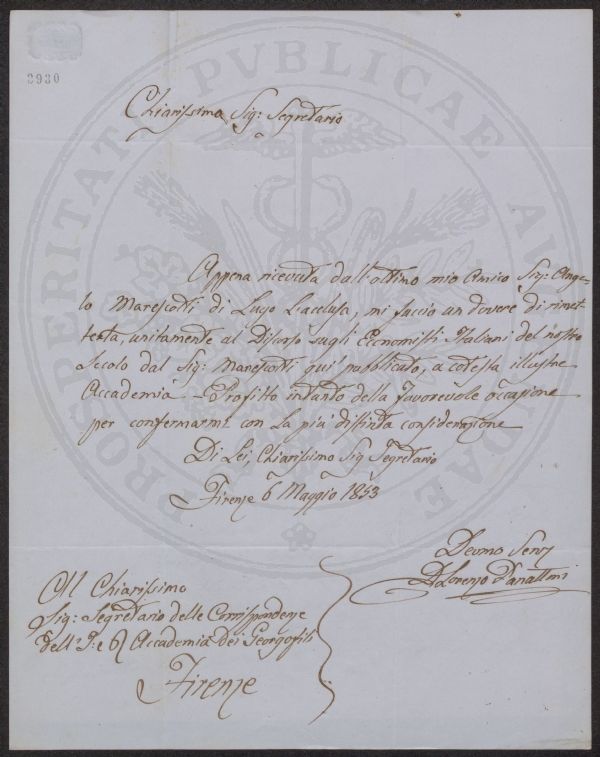 PROSPERITATI PVBLICAE AVGENDAE
3930
Chiarissimo Sig: Segretario
Appena ricevuta dall'ottimo mio Amico Sig: Ange=
lo Marescotti di Lugo l'acclusa, mi faccio un dovere di rimet=
terla, unitamente al Discorso sugli Economisti Italiani del nostro
Secolo dal Sig: Marescotti quì pubblicato, a cotesta illustre
Accademia - Profitto intanto della favorevole occasione
per confermarmi con la più distinta considerazione
Di Lei, Chiarissimo Sig Segretario
Firenze 6 Maggio 1853
Devmo Serv
D Lorenzo
Al Chiarissimo
Sig: Segretario delle Corrispondenze
dell' I: e R Accademia dei Georgofili
Firenze